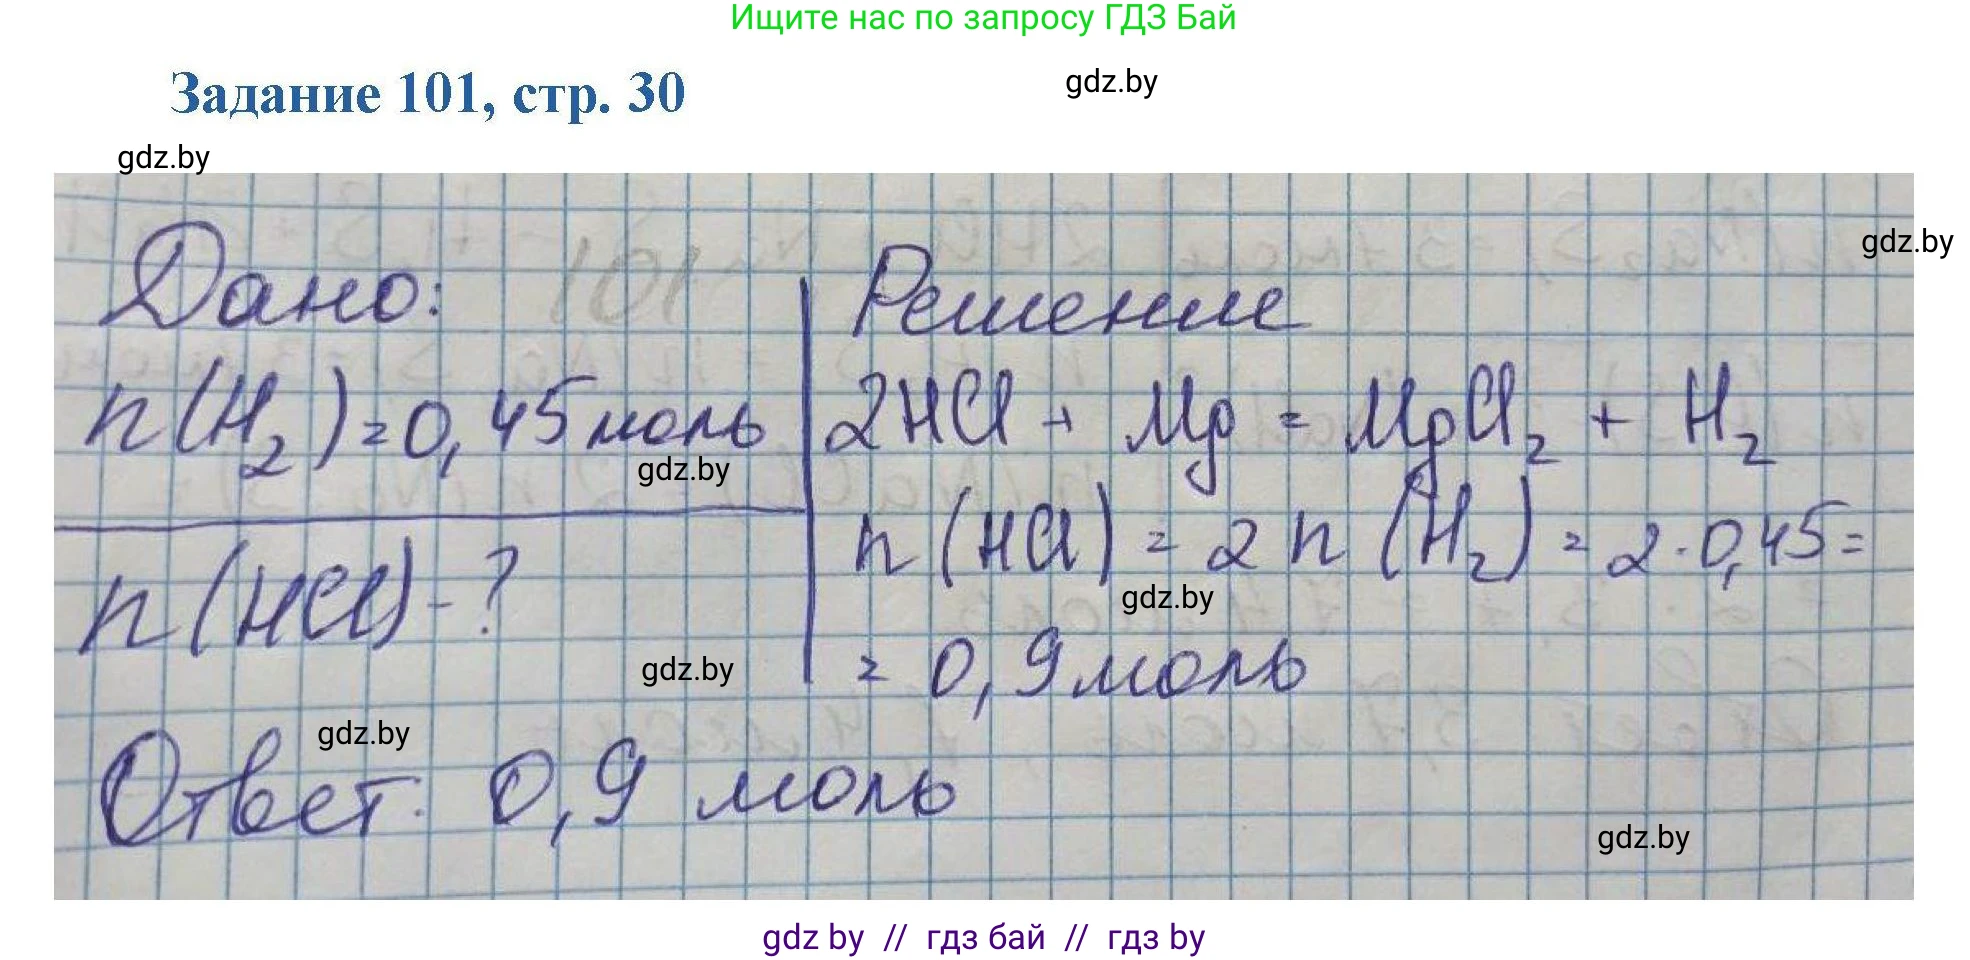 Ищите нас по запросу ГДЗ Бай
Задание 101, стр. 30
gdz.by
gdz.by
gdz.by
Дано:
101
Решение
n(H₂)=0,45моль
2HCl + Mg = MgCl₂ + H₂
gdz.by
n(HCl)-?
n(HCl) = 2n(H₂) = 2·0,45=
gdz.by
= 0,9моль
gdz.by
gdz.by
Ответ: 0,9 моль
gdz.by
gdz by // гдз бай // гдз by